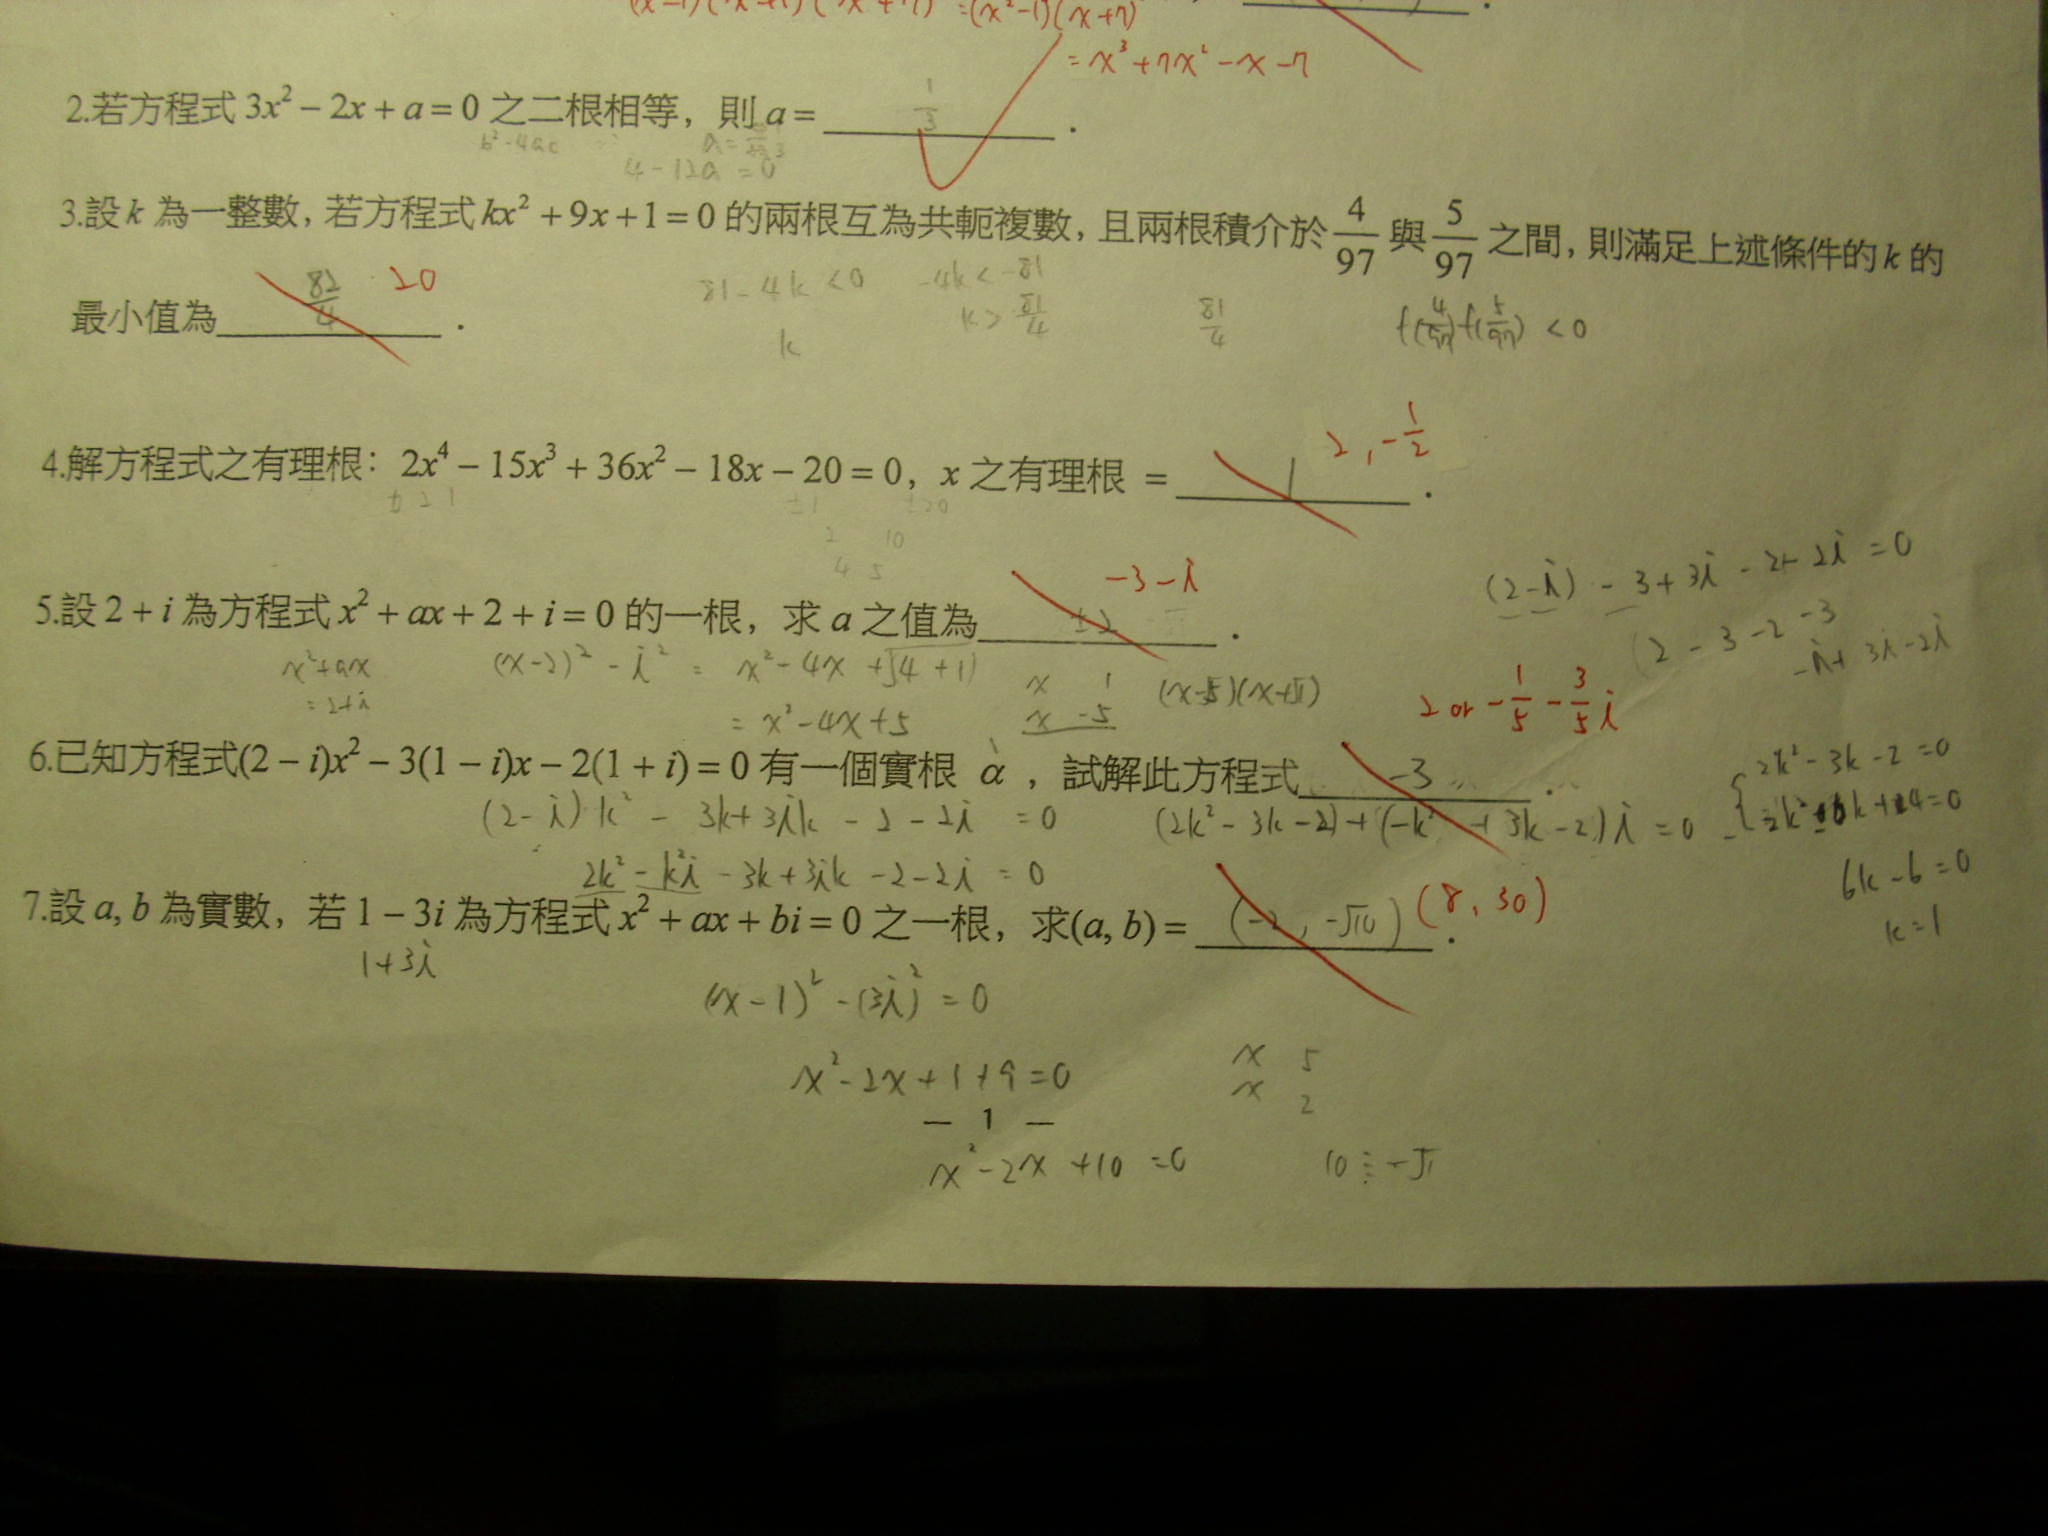 =(x²-1)(x+7)
= x³+7x²-x-7
2.若方程式 3x² − 2x + a = 0 之二根相等，則 a = 1/3 .
b²-4ac
4-12a = 0
3.設 k 為一整數，若方程式 kx² + 9x + 1 = 0 的兩根互為共軛複數，且兩根積介於 4/97 與 5/97 之間，則滿足上述條件的 k 的
最小值為 82/4 . 20
81-4k < 0 -4k < -81
k > 81/4 81/4 f(4/97) f(5/97) < 0
k
4.解方程式之有理根：2x⁴ − 15x³ + 36x² − 18x − 20 = 0，x 之有理根 = 1 . 2, -1/2
±1 ±20
2 10
4 5
5.設 2 + i 為方程式 x² + ax + 2 + i = 0 的一根，求 a 之值為 ±2 . -3-i
(2-i) - 3+3i - 2+2i = 0
x²+ax
= 2+i
(x-2)² - i² = x²-4x+(4+1)
= x²-4x+5
x 1
x -5
6.已知方程式(2 − i)x² − 3(1 − i)x − 2(1 + i) = 0 有一個實根 α，試解此方程式 -3 . 2 or -1/5 - 3/5 i
(2-i)k² - 3k+3ik - 2 - 2i = 0 (2k²-3k-2)+(-k²+3k-2)i = 0
2k² - k²i - 3k+3ik - 2 - 2i = 0
2k²-3k-2 =0
6k-6=0
k=1
7.設 a, b 為實數，若 1 − 3i 為方程式 x² + ax + bi = 0 之一根，求(a, b) = (-2, -√10) . (8, 30)
1+3i
(x-1)² - (3i)² = 0
x²-2x+1+9=0
x 5
x 2
— 1 —
x²-2x+10 =0